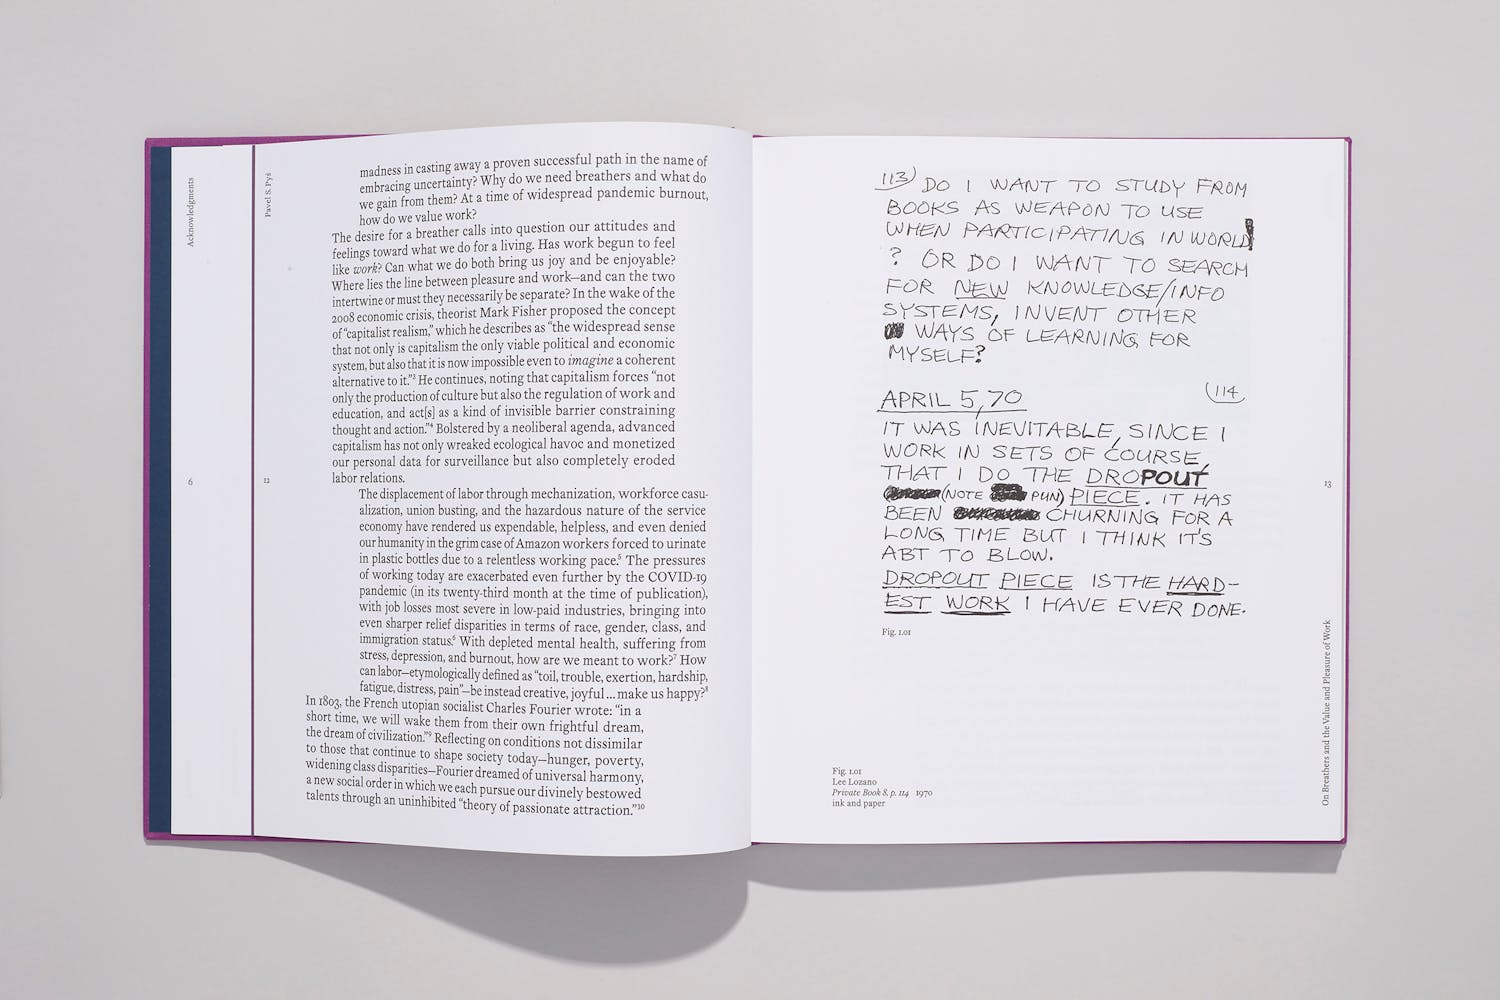 Acknowledgments
6
Pavel S. Pyś
12
madness in casting away a proven successful path in the name of
embracing uncertainty? Why do we need breathers and what do
we gain from them? At a time of widespread pandemic burnout,
how do we value work?
The desire for a breather calls into question our attitudes and
feelings toward what we do for a living. Has work begun to feel
like work? Can what we do both bring us joy and be enjoyable?
Where lies the line between pleasure and work—and can the two
intertwine or must they necessarily be separate? In the wake of the
2008 economic crisis, theorist Mark Fisher proposed the concept
of “capitalist realism,” which he describes as “the widespread sense
that not only is capitalism the only viable political and economic
system, but also that it is now impossible even to imagine a coherent
alternative to it.”³ He continues, noting that capitalism forces “not
only the production of culture but also the regulation of work and
education, and act[s] as a kind of invisible barrier constraining
thought and action.”⁴ Bolstered by a neoliberal agenda, advanced
capitalism has not only wreaked ecological havoc and monetized
our personal data for surveillance but also completely eroded
labor relations.
The displacement of labor through mechanization, workforce casu-
alization, union busting, and the hazardous nature of the service
economy have rendered us expendable, helpless, and even denied
our humanity in the grim case of Amazon workers forced to urinate
in plastic bottles due to a relentless working pace.⁵ The pressures
of working today are exacerbated even further by the COVID-19
pandemic (in its twenty-third month at the time of publication),
with job losses most severe in low-paid industries, bringing into
even sharper relief disparities in terms of race, gender, class, and
immigration status.⁶ With depleted mental health, suffering from
stress, depression, and burnout, how are we meant to work?⁷ How
can labor—etymologically defined as “toil, trouble, exertion, hardship,
fatigue, distress, pain”—be instead creative, joyful ... make us happy?⁸
In 1803, the French utopian socialist Charles Fourier wrote: “in a
short time, we will wake them from their own frightful dream,
the dream of civilization.”⁹ Reflecting on conditions not dissimilar
to those that continue to shape society today—hunger, poverty,
widening class disparities—Fourier dreamed of universal harmony,
a new social order in which we each pursue our divinely bestowed
talents through an uninhibited “theory of passionate attraction.”¹⁰
113) DO I WANT TO STUDY FROM
BOOKS AS WEAPON TO USE
WHEN PARTICIPATING IN WORLD
? OR DO I WANT TO SEARCH
FOR NEW KNOWLEDGE/INFO
SYSTEMS, INVENT OTHER
WAYS OF LEARNING FOR
MYSELF?
(114
APRIL 5, 70
IT WAS INEVITABLE, SINCE I
WORK IN SETS OF COURSE,
THAT I DO THE DROPOUT
(NOTE PUN) PIECE. IT HAS
BEEN CHURNING FOR A
LONG TIME BUT I THINK IT'S
ABT TO BLOW.
DROPOUT PIECE IS THE HARD-
EST WORK I HAVE EVER DONE.
Fig. 1.01
Fig. 1.01
Lee Lozano
Private Book 8. p. 114 1970
ink and paper
13
On Breathers and the Value and Pleasure of Work